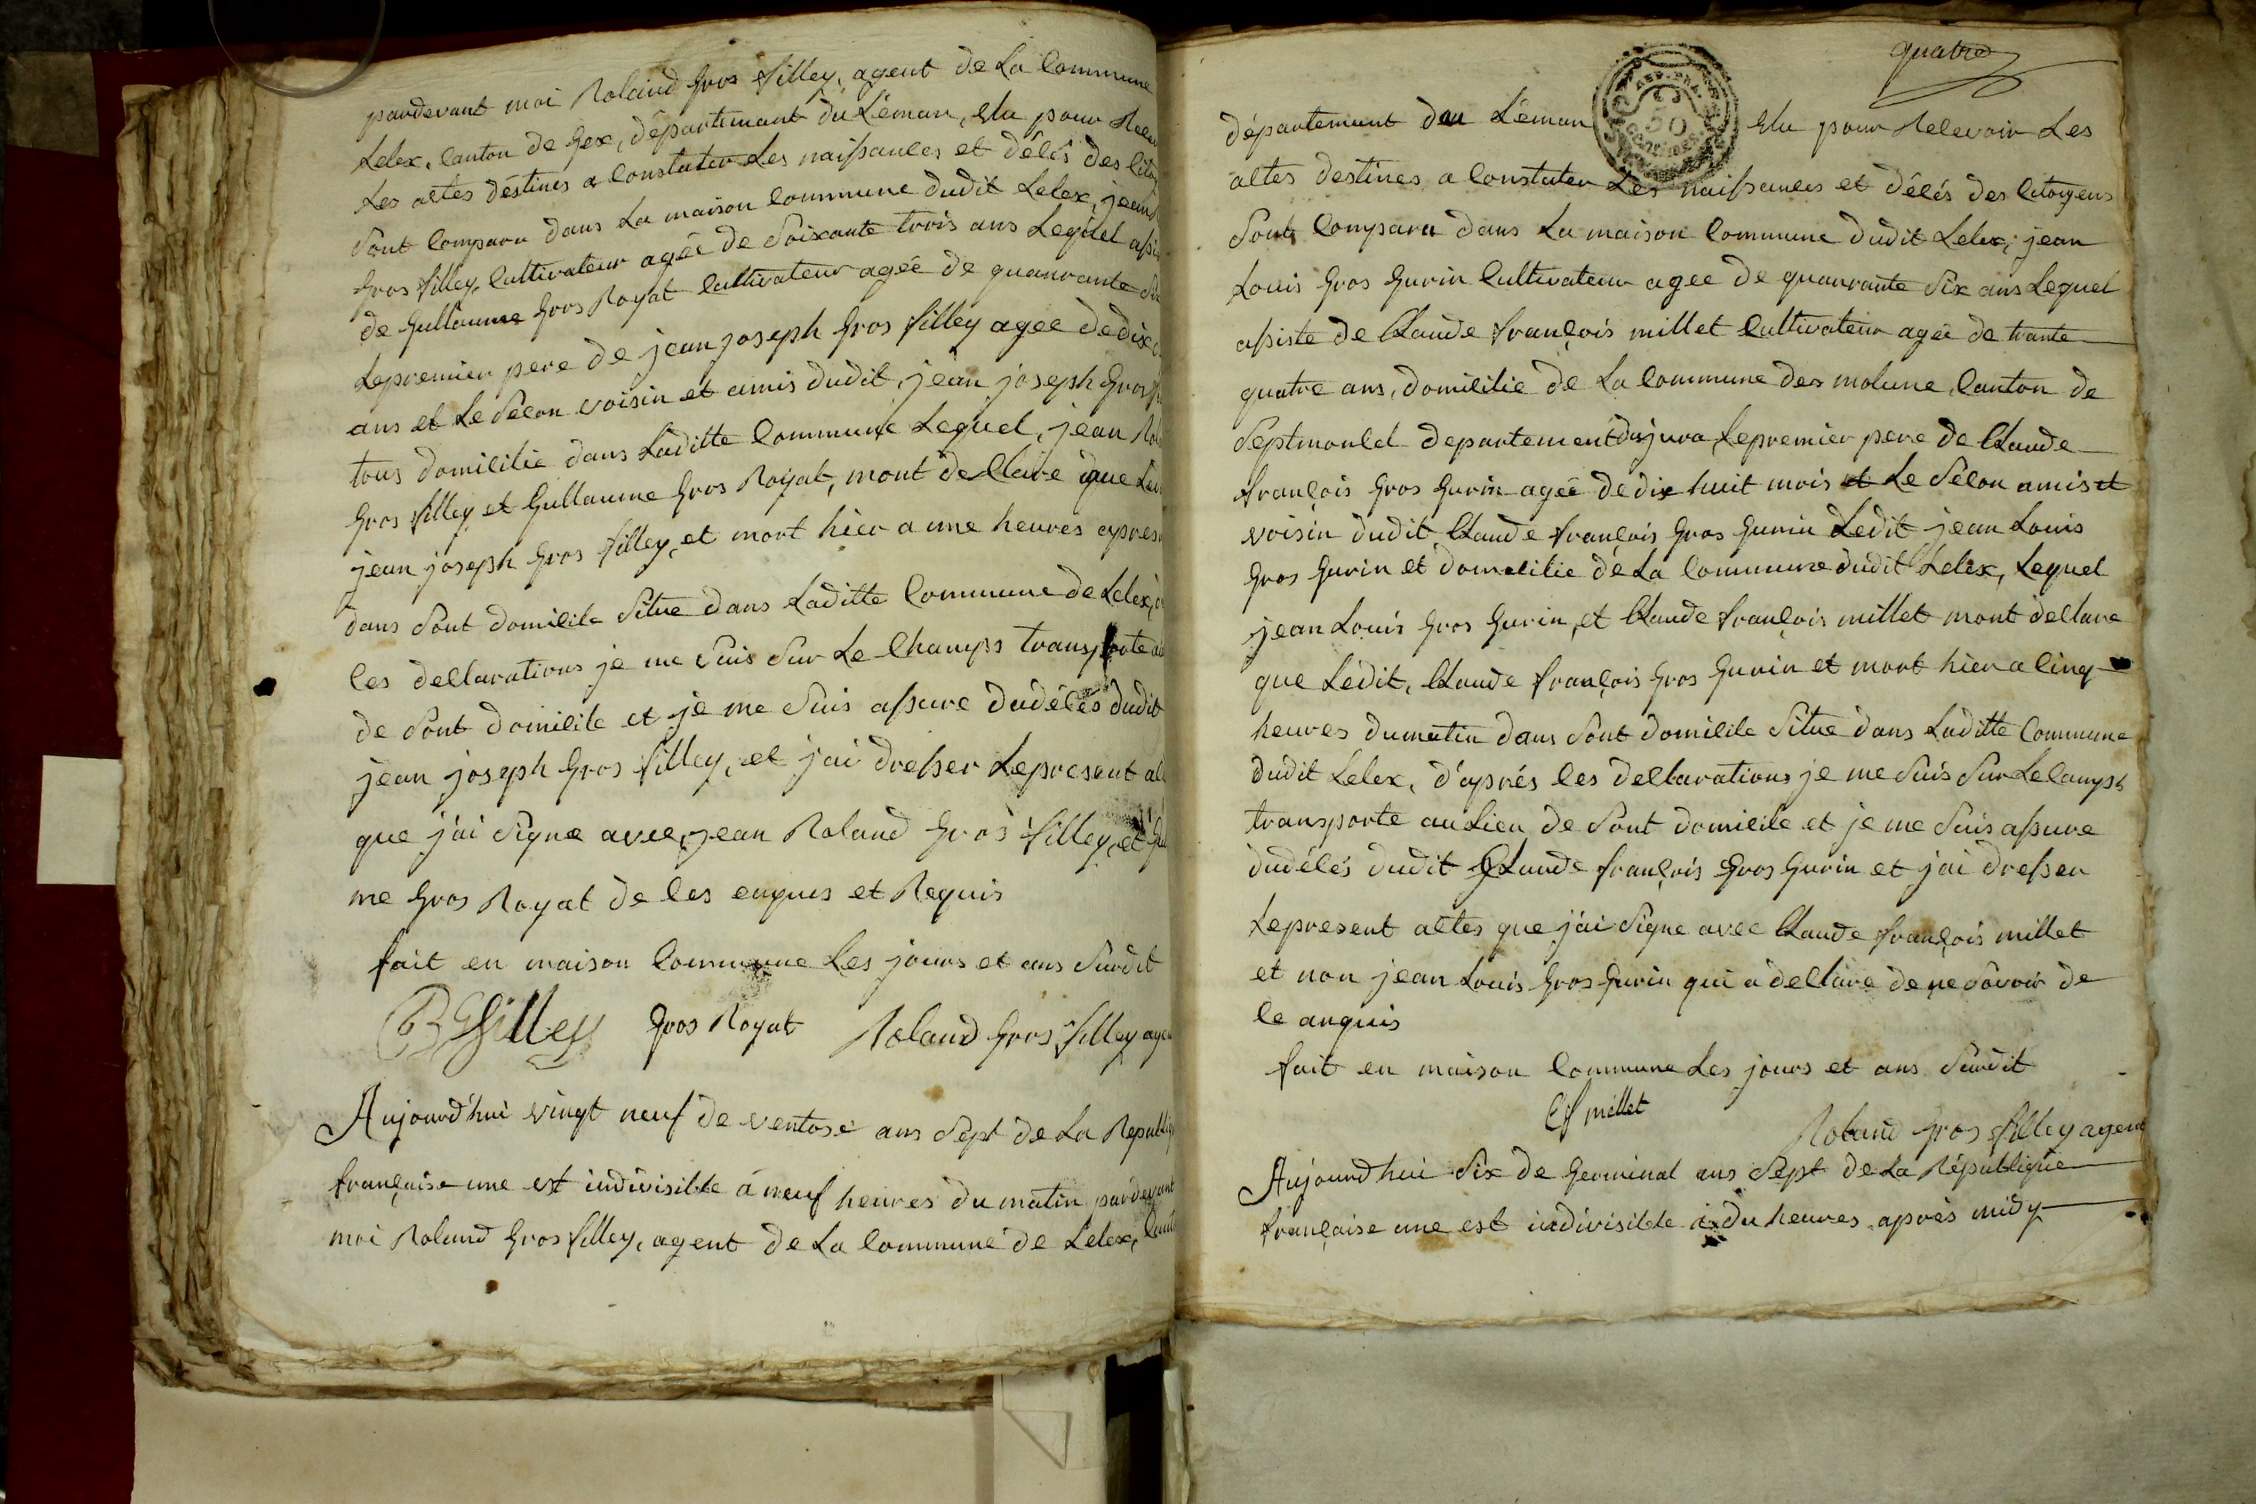 pardevant moi Roland Gros filley, agent de La Commune
Lelex, Canton de Gex, département du Léman, elu pour
Les actes destines a Constater Les naissances et décés des
Sont Comparu dans La maison Commune dudit Lelex, jean
Gros filley, Cultivateur ageé de Soixante trois ans Lequel
de Gullaume Gros Royat Cultivateur ageé de quanrante
Lepremier pere de jean joseph Gros filley agee de dix
ans et Le Secon voisin et amis dudit, jean joseph Gros
tous domicilie dans Laditte Commune Lequel, jean
Gros filley et Gullaume Gros Royat, mont declare que
jean joseph Gros filley, et mort hier a une heures apres
dans Sont domicile Situe dans Laditte Commune de Lelex,
ces declarations je me Suis Sur Le Champs transporte
de Sont domicile et je me Suis assure dudécés dudit
jean joseph Gros filley, et jai dresser Lepresent
que jai Signe avec, jean Roland Gros filley, et
me Gros Royat de ces enques et Requis
fait en maison Commune Les jours et ans Surdit
filley Gros Royat Roland Gros filley
Aujourd'hui vingt neuf de ventose ans Sept de La
française une est indivisible à neuf heures du matin pardevant
moi Roland Gros filley, agent de La Commune de Lelex,
quatre
REP. FRA.
50
département du Léman elu pour Recevoir Les
actes destines a Constater Les naissances et décés des Citoyens
Sont Comparu dans La maison Commune dudit Lelex, jean
Louis Gros Gurin Cultivateur agee de quanrante Six ans Lequel
assiste de Claude françois millet Cultivateur ageé de trante
quatre ans, domicilie de La Commune des molune, Canton de
Septmoncel departement du jura, Lepremier pere de Claude
françois Gros Gurin ageé de dix huit mois et Le Secon amis et
voisin dudit Claude françois Gros Gurin Ledit jean Louis
Gros Gurin et domicilie de La Commune dudit Lelex, Lequel
jean Louis Gros Gurin, et Claude françois millet mont declare
que Ledit, Claude françois Gros Gurin et mort hier a Cinq
heures du matin dans Sont domicile Situe dans Laditte Commune
dudit Lelex, d'aprés ces declarations je me Suis Sur Le camps
transporte au Lieu de Sont domicile et je me Suis assure
dudécés dudit Claude françois Gros Gurin et jai dresser
Lepresent actes que jai Signe avec Claude françois millet
et non jean Louis Gros Gurin qui a declare de ne Savoir de
ce anquis
fait en maison Commune Les jours et ans Surdit
Cf millet
Roland Gros filley agent
Aujourdhui Six de Germinal ans Sept de La République
française une est indivisible heures aprés midy